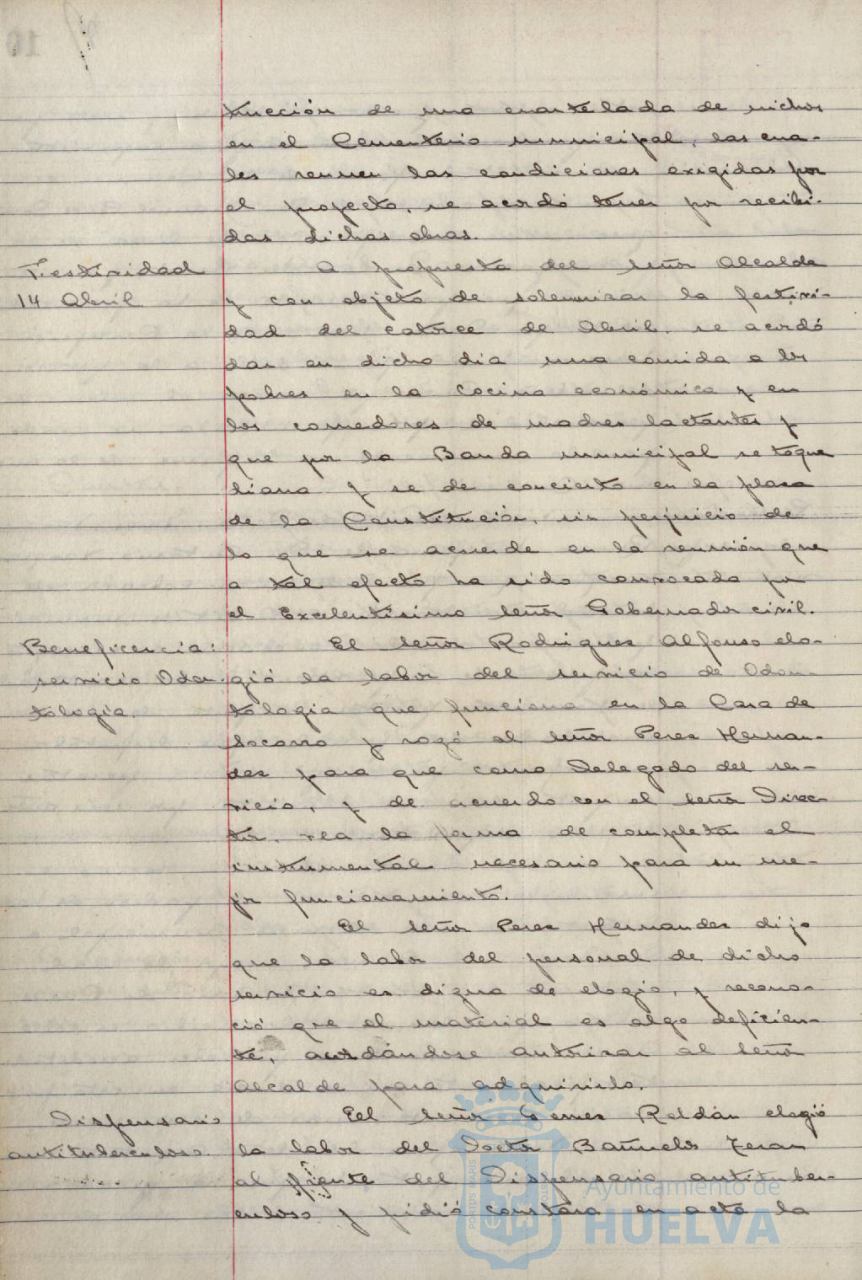 trucción de una cuartelada de nichos
en el Cementerio municipal, las cua-
les reunen las condiciones exigidas por
el proyecto, se acordó tener por recibi-
das dichas obras.
Festividad
14 Abril
A propuesta del señor Alcalde
y con objeto de solemnizar la festivi-
dad del catorce de Abril, se acordó
dar en dicho dia una comida a los
pobres en la Cocina económica y en
los comedores de madres lactantes y
que por la Banda municipal se toque
diana y se de concierto en la plaza
de la Constitución, sin perjuicio de
lo que se acuerde en la reunión que
a tal efecto ha sido convocada por
el Excelentisimo señor Gobernador civil.
Beneficencia:
servicio Odon-
tologia.
El señor Rodriguez Alfonso elo-
gió la labor del servicio de Odon-
tologia que funciona en la Casa de
Socorro y rogó al señor Perez Hernan-
dez para que como Delegado del ser-
vicio, y de acuerdo con el señor Direc-
tor, vea la forma de completar el
instrumental necesario para su me-
jor funcionamiento.
El señor Perez Hernandez dijo
que la labor del personal de dicho
servicio es digna de elogio, y recono-
ció que el material es algo deficien-
te, acordándose autorizar al señor
Alcalde para adquirirlo.
Dispensario
antituberculoso.
El señor Gomez Roldán elogió
la labor del Doctor Bañuelos Teran
al frente del Dispensario antituber-
culoso y pidió constara en acta la
Ayuntamiento de
HUELVA